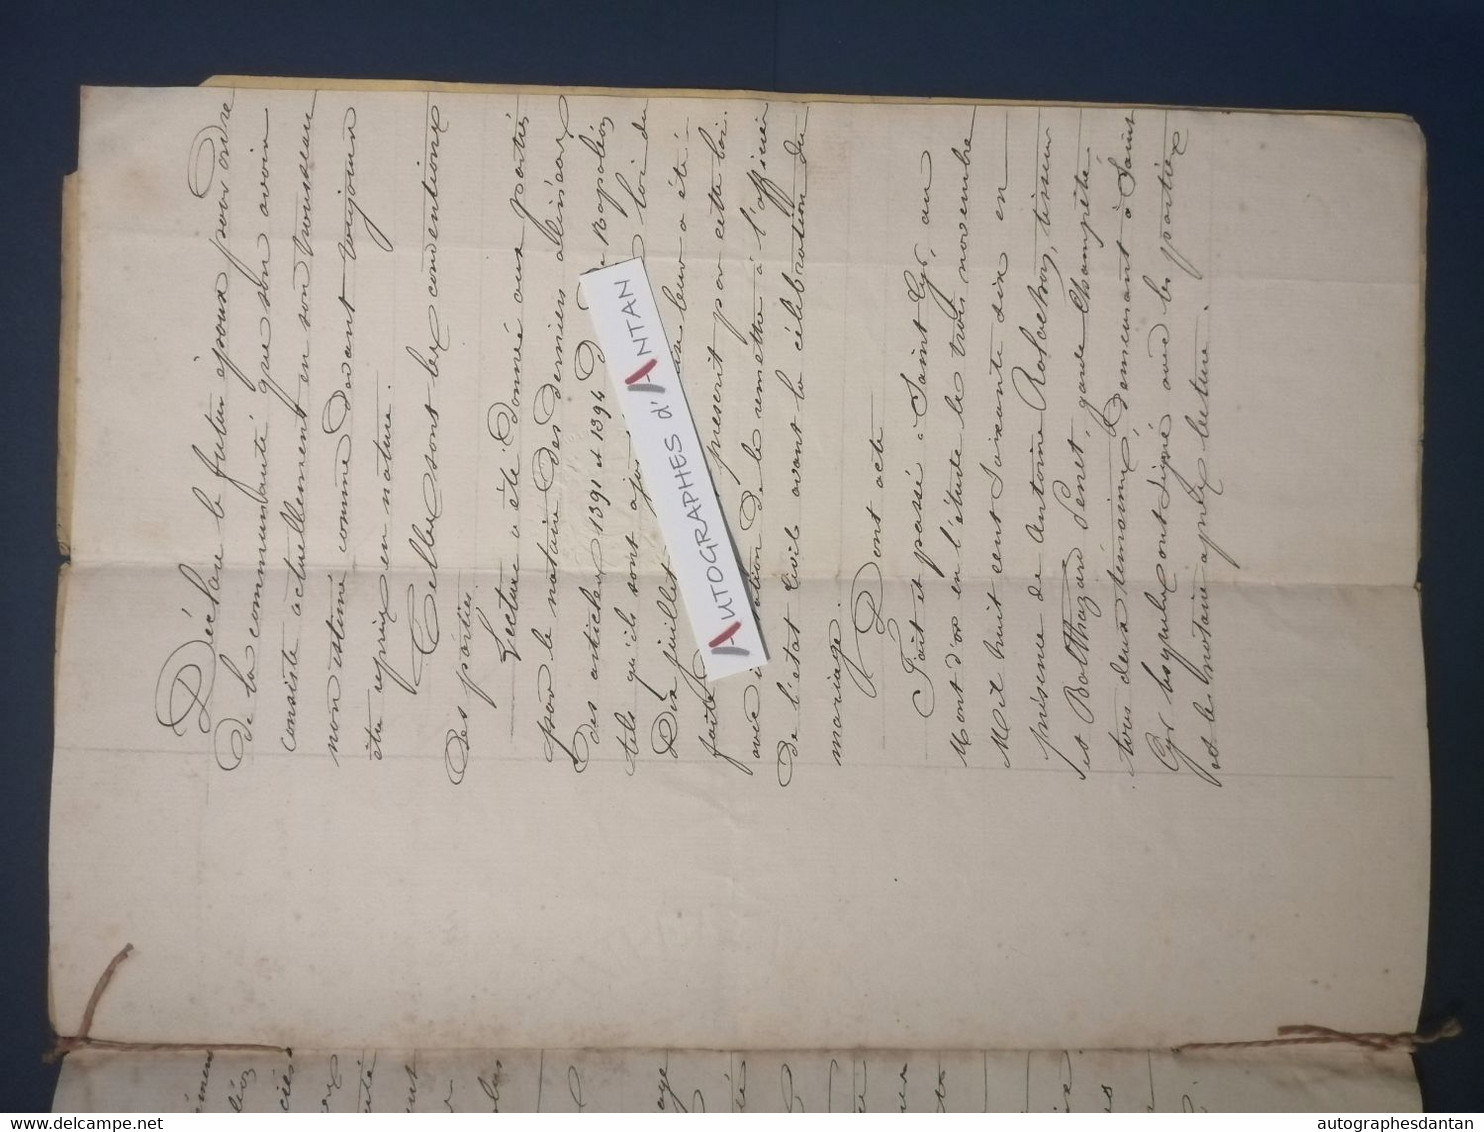 Déclare le futur époux pour ordre
De la communauté que son avoir
consiste actuellement en son trousseau
non estimé comme devant toujours
être repris en nature.
Telles sont les conventions
Des parties.
Lecture a été donnée aux parties
par le notaire des derniers alinéas
Des articles 1391 et 1394 Napoléon
tels qu'ils sont loi du
Dix juillet leur a été
faite prescrit par cette loi.
avec de le remettre à l'officier
de l'état civil avant la célébration du
mariage.
Dont acte
Fait et passé à Saint Cyr, au
Mont d'or en l'étude le trois novembre
Mil huit cent soixante six en
présence de Antoine tisseur
et Balthazard Penet, garde Champêtre
tous deux témoins demeurant à Saint
Cyr lesquels ont signé avec les parties
et le notaire après lecture.
AUTOGRAPHES d'ANTAN
delcampe.net
autographesdantan